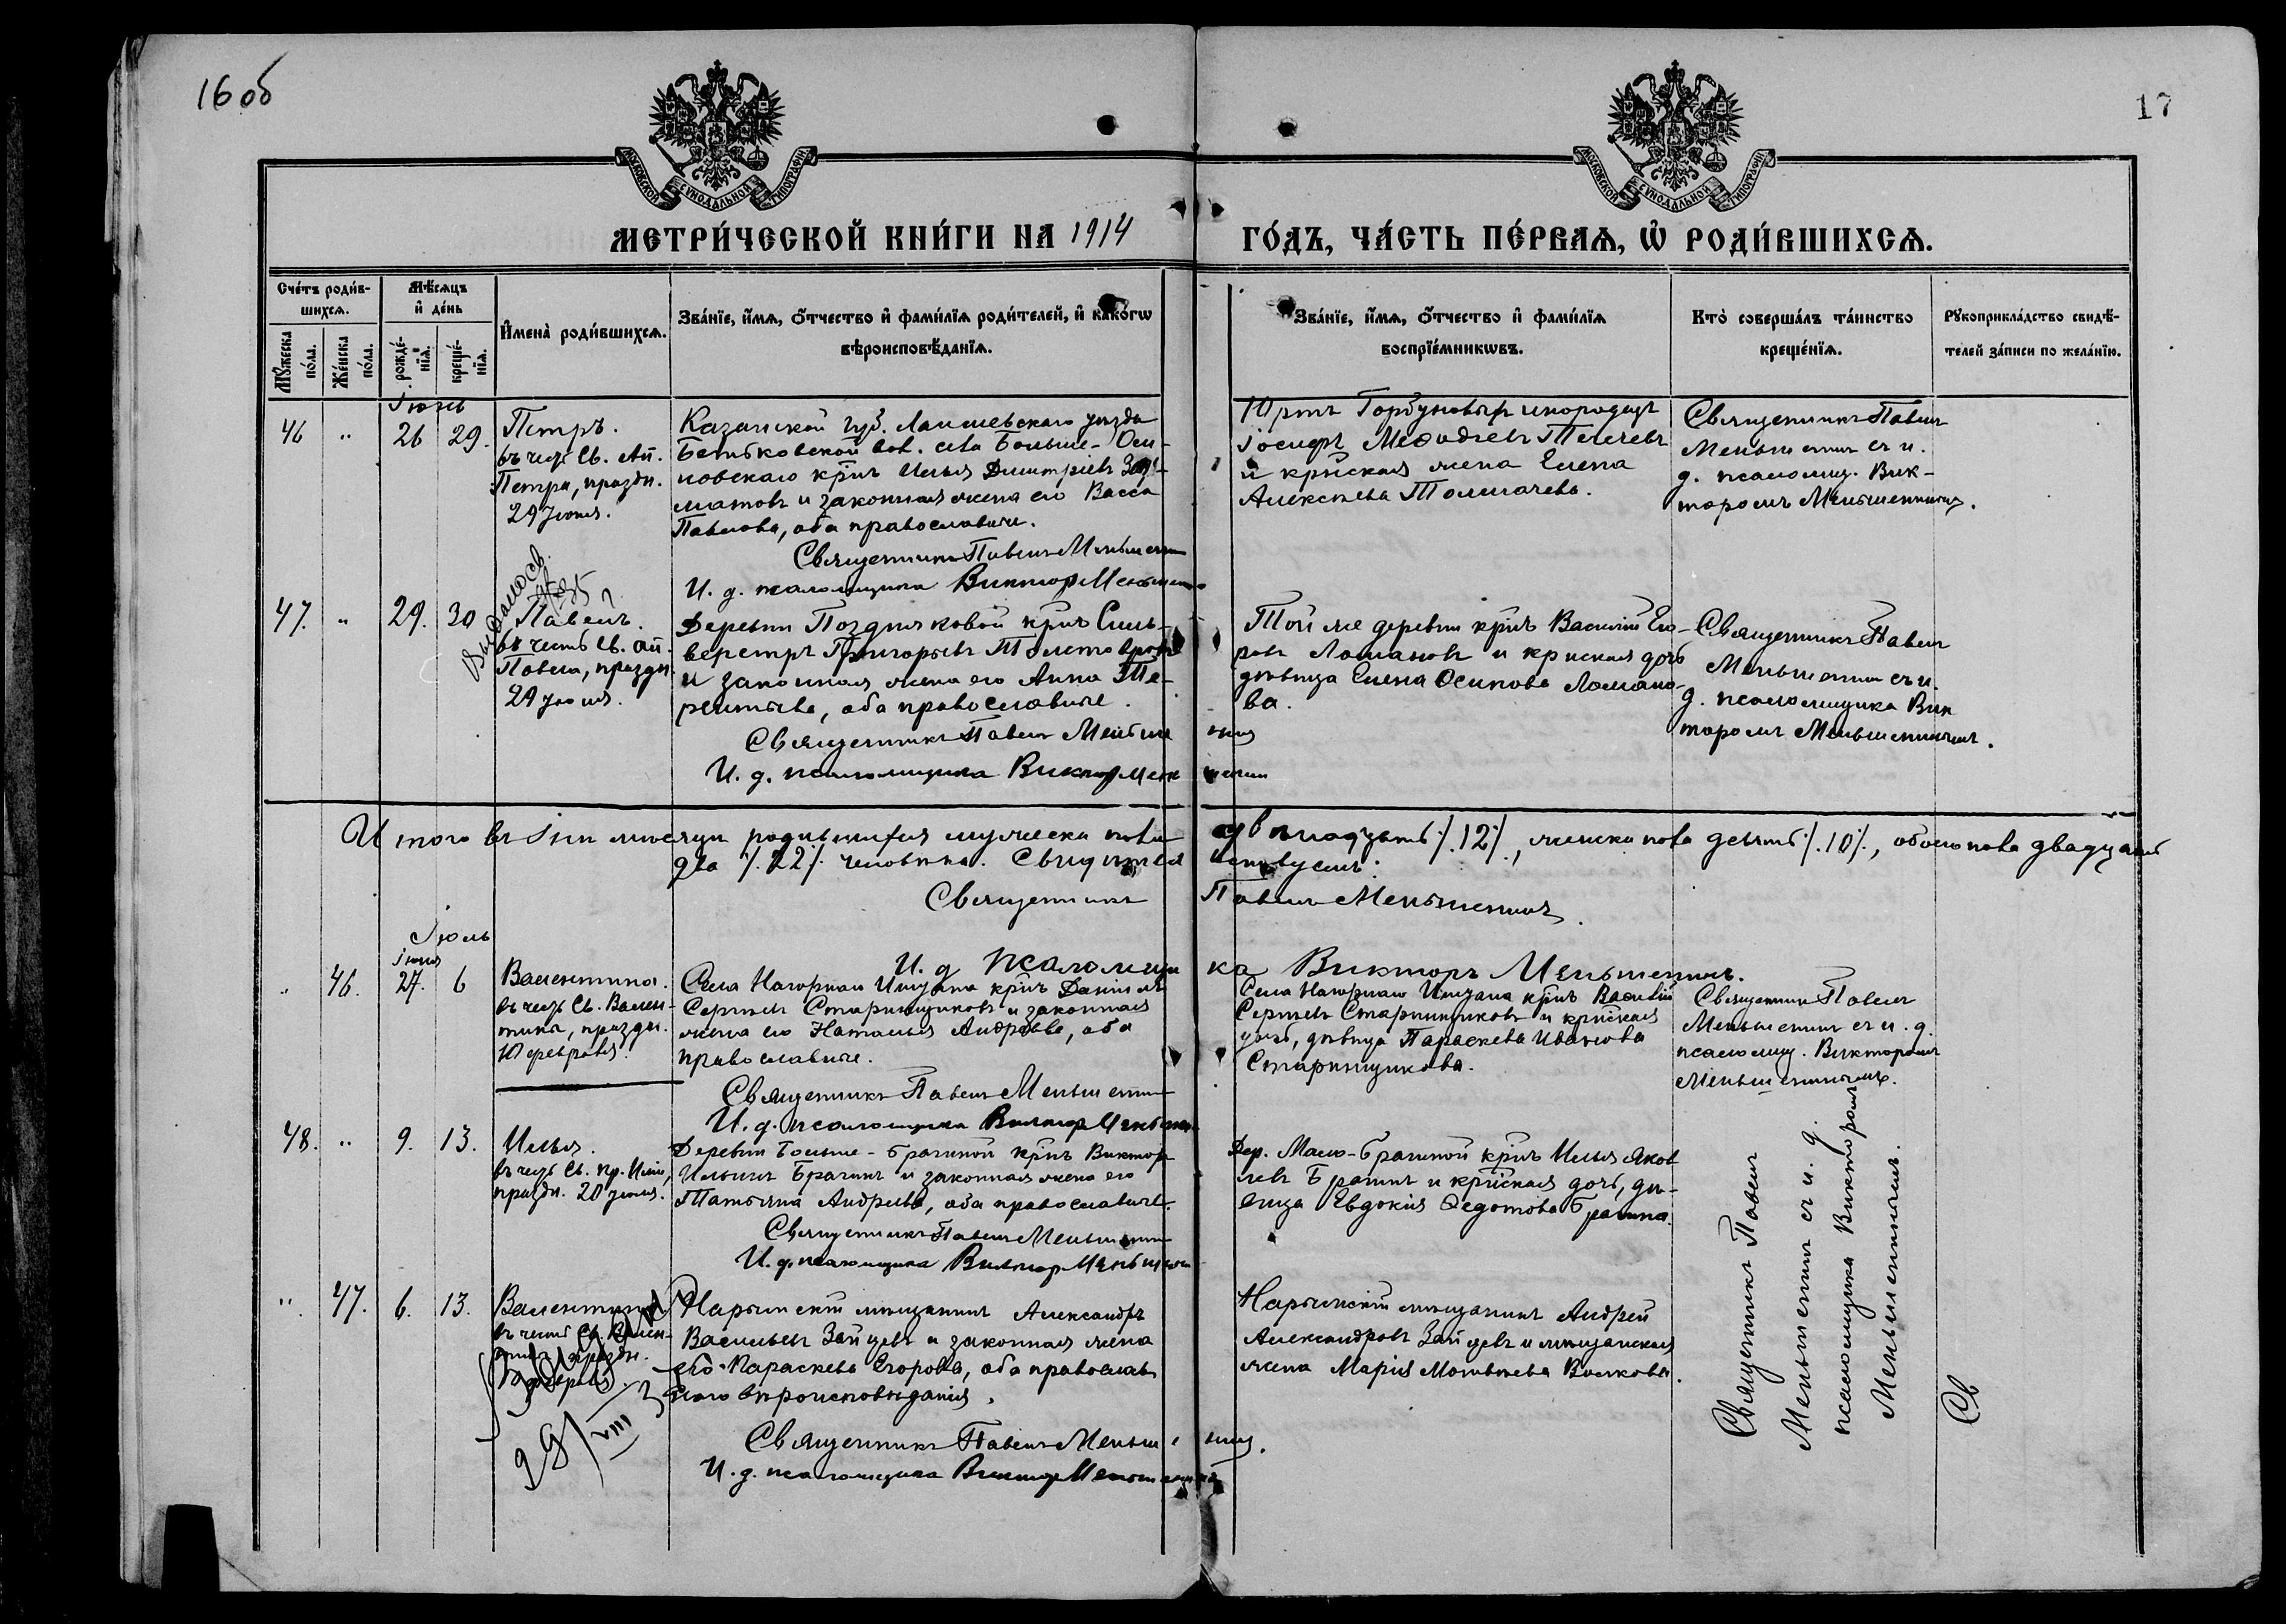 16 об
17
МОСКОВСКОЙ СѴНОДАЛЬНОЙ ТИПОГРАФІИ
МОСКОВСКОЙ СѴНОДАЛЬНОЙ ТИПОГРАФІИ
МЕТРИ́ЧЕСКОЙ КНИ́ГИ НА 1914 ГО́ДЪ, ЧА́СТЬ ПЕ́РВАѦ, Ѡ҆ РОДИ́ВШИХСѦ.
Сче́тъ роди́в-
шихсѧ.
Мѣ́сѧцъ
и҆ де́нь
Мꙋ́жеска
по́ла.
Же́нска
по́ла.
рожде́-
нїѧ.
креще́-
нїѧ.
И҆мена̀ роди́вшихсѧ.
Зва́нїе, и҆́мѧ, ѻ҆́тчество и҆ фами́лїѧ роди́телей, и҆ како́гѡ
вѣроисповѣ́данїѧ.
Зва́нїе, и҆́мѧ, ѻ҆́тчество и҆ фами́лїѧ
воспрїе́мникѡвъ.
Кто̀ соверша́лъ та́инство
креще́нїѧ.
Рꙋкоприкла́дство свидѣ́-
телей за́писи по жела́нїю.
Іюнь
46 " 26 29.
Петръ.
въ честь Св. Ап.
Петра, праздн.
29 Іюня.
Казанской губ. Лаишевскаго уѣзда
вол. села Больше-
новскаго кр̃нъ Илья Димитріевъ
и законная жена его Васса
Павлова, оба православные.
Священникъ Павелъ Меньшенинъ
И. д. псаломщика Викторъ Меньшенинъ
Юртъ Горбуновыхъ инородецъ
Іосифъ Меѳодіевъ
и кр̃нская жена Елена
Алексѣева Толмачева.
Священникъ Павелъ
Меньшенинъ съ и.
д. псаломщ. Вик-
торомъ Меньшенинымъ.
47. " 29. 30
Павелъ.
въ честь Св. Ап.
Павла, праздн.
29 Іюня.
Деревни Поздняковой кр̃нъ Силь-
верстръ Григорьевъ
и законная жена его Анна Те-
рентьева, оба православные.
Священникъ Павелъ Меньшенинъ
И. д. псаломщика Викторъ Меньшенинъ
Той же деревни кр̃нъ Василій Его-
ровъ Ломановъ и кр̃нская дочь
дѣвица Елена Осипова Ломано-
ва.
Священникъ Павелъ
Меньшенинъ съ и.
д. псаломщика Вик
торомъ Меньшенинымъ.
Итого въ Іюнѣ мѣсяцѣ родившихся мужеска пола двѣнадцать /.12/., женска пола десять /.10/., обоего пола двадцать
два /.22/. человѣка. Свидѣтельствуемъ:
Священникъ Павелъ Меньшенинъ.
И. д. псаломщика Викторъ Меньшенинъ.
Іюль
Іюня
" 46. 27. 6
Валентина.
въ честь Св. Вален-
тины, праздн.
10 февраля.
Села Нагорнаго Иштана кр̃нъ Даніилъ
Сергѣевъ Старинщиковъ и законная
жена его Наталья Андреева, оба
православные.
Священникъ Павелъ Меньшенинъ
И. д. псаломщика Викторъ Меньшенинъ
Села Нагорнаго Иштана кр̃нъ Василій
Сергѣевъ Старинщиковъ и кр̃нская
дочь, дѣвица Параскева Иванова
Старинщикова.
Священникъ Павелъ
Меньшенинъ съ и. д.
псаломщ. Викторомъ
Меньшенинымъ.
48. " 9. 13.
Илья.
въ честь Св. пр. Иліи,
праздн. 20 Іюля.
Деревни Больше-Брагиной кр̃нъ Викторъ
Ильинъ Брагинъ и законная жена его
Татьяна Андреева, оба православные.
Священникъ Павелъ Меньшенинъ
И. д. псаломщика Викторъ Меньшенинъ
Дер. Мало-Брагиной кр̃нъ Илья Яков
левъ Брагинъ и кр̃нская дочь, дѣ-
вица Евдокія Ѳедотова Брагина.
" 47. 6. 13.
Валентина
въ честь Св. Вален-
тины праздн.
10 февраля.
Нарымскій мѣщанинъ Александръ
Васильевъ Зайцевъ и законная жена
его Параскева Егорова, оба православ
наго вѣроисповѣданія.
Священникъ Павелъ Меньшенинъ.
И. д. псаломщика Викторъ Меньшенинъ
Нарымскій мѣщанинъ Андрей
Александровъ Зайцевъ и мѣщанская
жена Марія Матвѣева Волкова.
Священникъ Павелъ
Меньшенинъ съ и. д.
псаломщика Викторомъ
Меньшенинымъ.